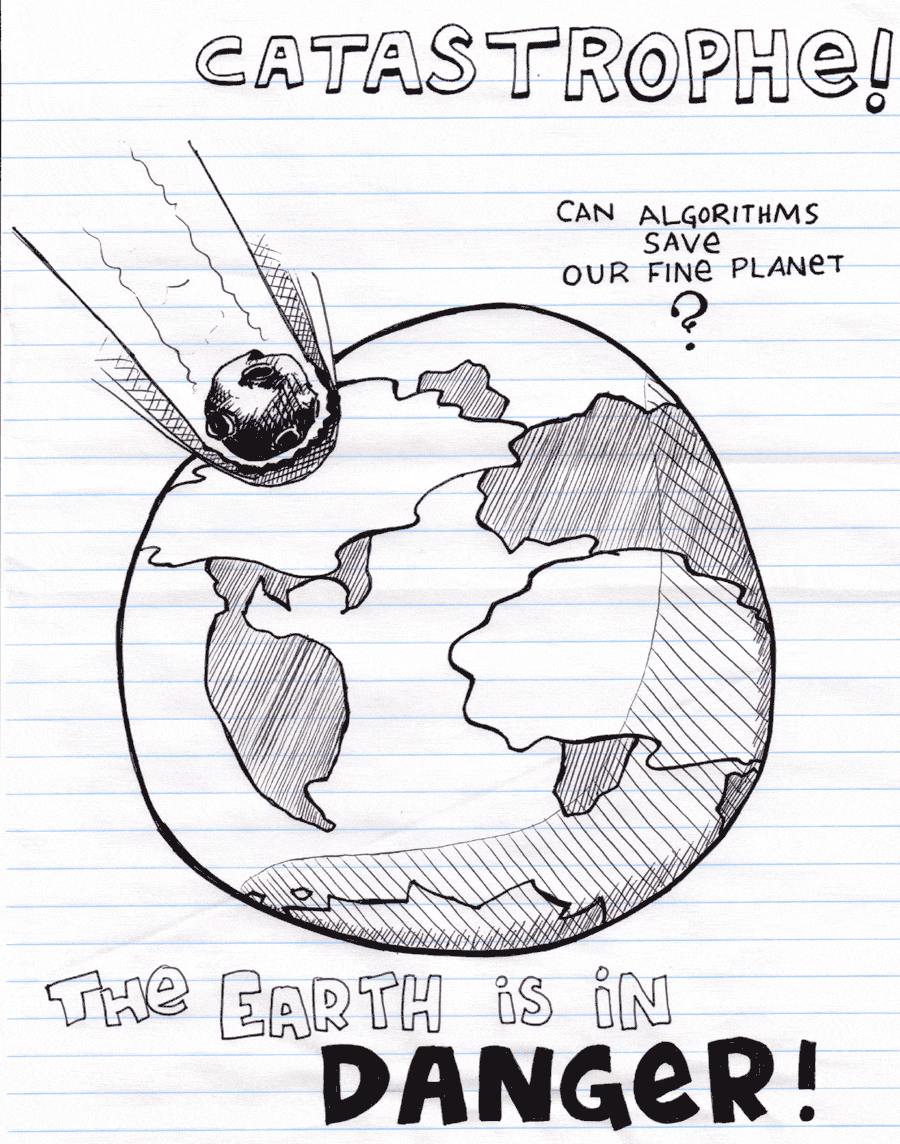 CATASTROPHe!
CAN ALGORITHMS
SAVe
OUR FINe PLANeT
?
THe EARTH iS iN
DANGeR!